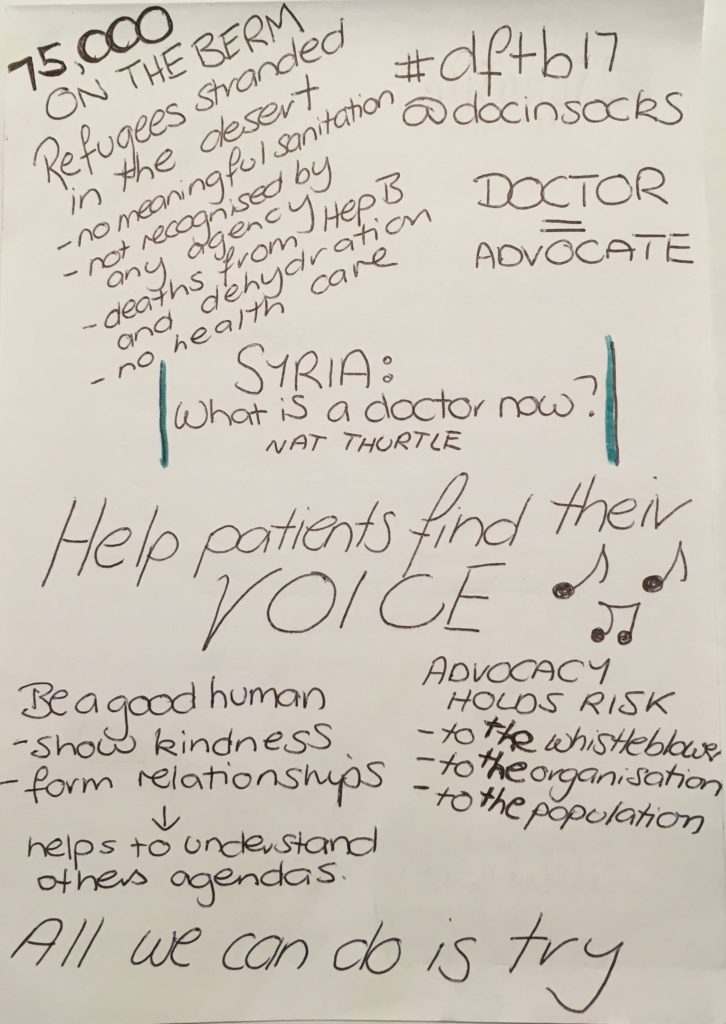 75,000
ON THE BERM
Refugees stranded
in the desert
- no meaningful sanitation
- not recognised by
any agency
- deaths from Hep B
and dehydration
- no health care
#dftb17
@docinsocks
DOCTOR
=
ADVOCATE
SYRIA:
What is a doctor now?
NAT THURTLE
Help patients find their
VOICE
Be a good human
- show kindness
- form relationships
↓
helps to understand
others agendas.
ADVOCACY
HOLDS RISK
- to the whistleblower
- to the organisation
- to the population
All we can do is try